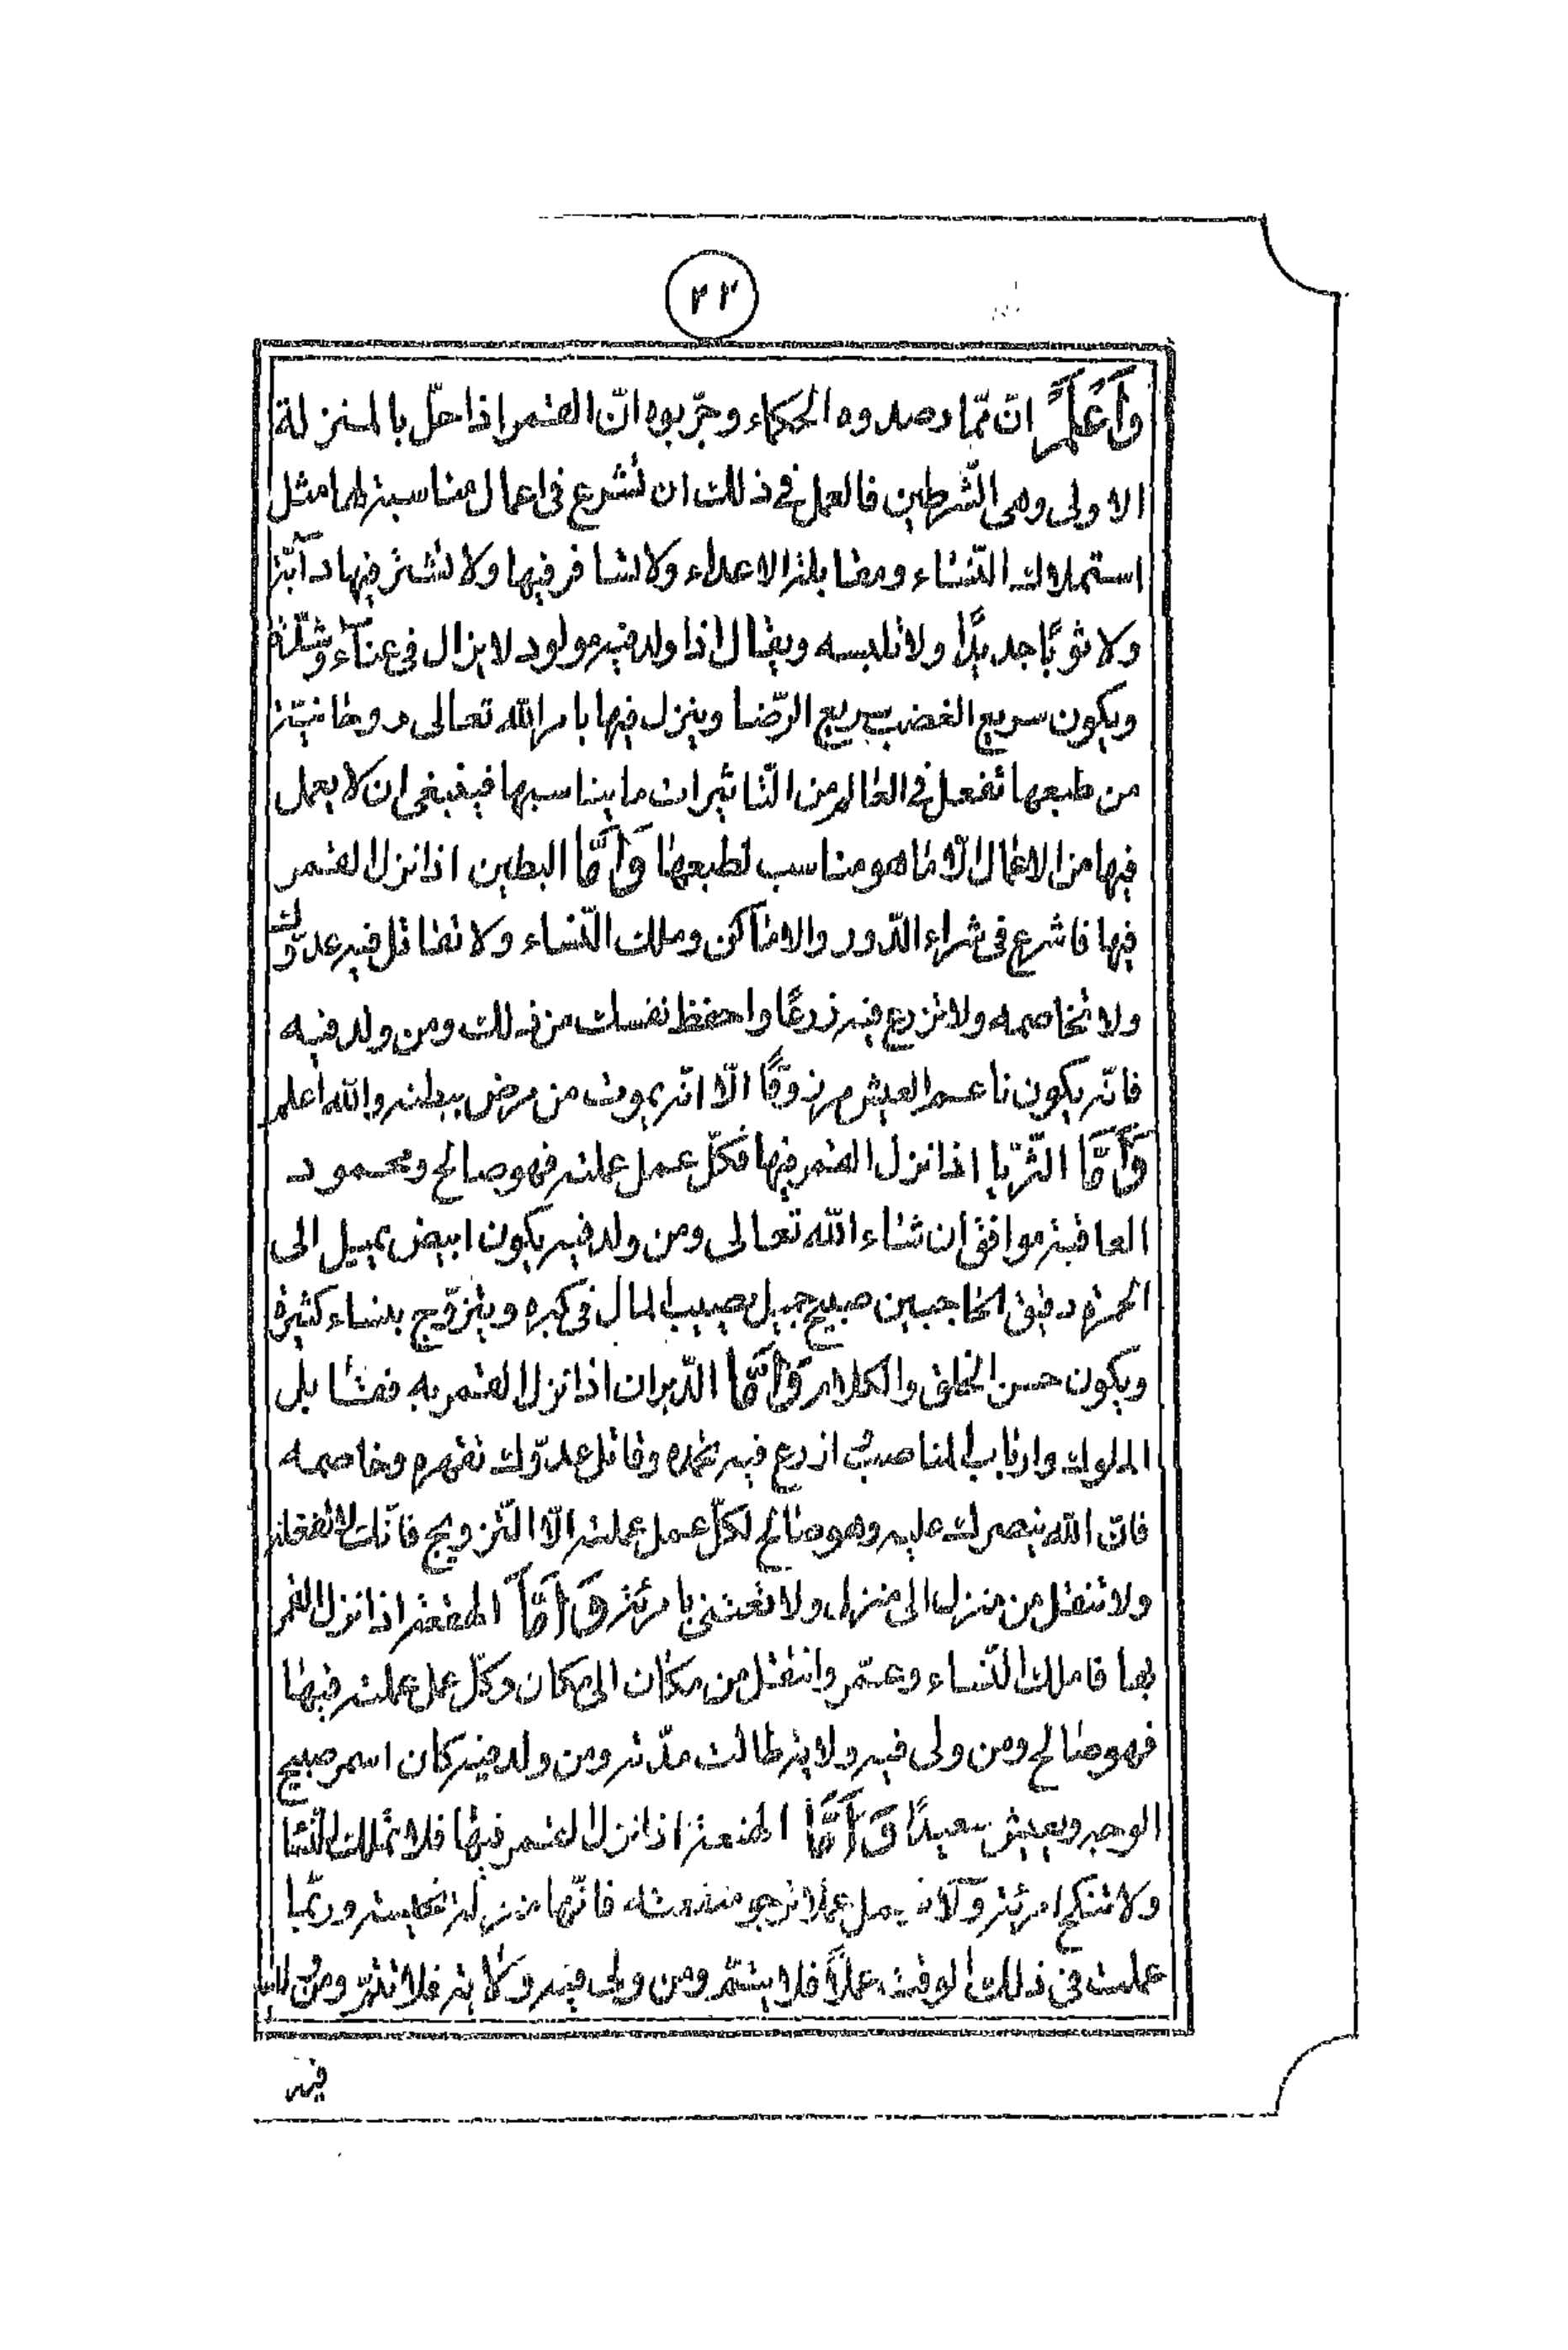 ٢٣
وَاَعْلَمْ انّ ممّا رصدوه الحكماء وجرّبوه انّ القمر اذا حلّ بالمنزلة
الاولى وهى الشّرطين فالعمل فى ذلك ان تشرع فى اعمال مناسبة لهما مثل
استملاك النّساء ومقابلة الاعداء ولا تسافر فيها ولا تشتر فيها دآبّة
ولا ثوبًا جديدًا ولا تلبسه ويقال اذا ولد فيه مولود لا يزال فى عنآء وشدّة
ويكون سريع الغضب سريع الرّضا وينزل فيها بامر الله تعالى روحانيّة
من طبعها تفعل فى العالم من التّاثيرات ما يناسبها فينبغى ان لا يعمل
فيها من الاعمال الّا ما هو مناسب لطبعها وَاَمَّا البطين اذا نزل القمر
فيها فاشرع فى شراء الدّور والاماكن وملك النّساء ولا تقاتل فيه عدوّك
ولا تخاصمه ولا تزرع فيه زرعًا واحفظ نفسك من ذلك ومن ولد فيه
فانّه يكون ناعم العيش مرزوقًا الّا انّه يموت من مرض ببطنه والله اعلم
وَاَمَّا الثّريّا اذا نزل القمر فيها فكلّ عمل عملته فهو صالح ومحمود
العاقبة موافق ان شاء الله تعالى ومن ولد فيه يكون ابيض يميل الى
الحمرة دقيق الحاجبين صبيح جميل يصيب المال فى كبره ويتزوّج بنساء كثيرة
ويكون حسن الخلق والكلام وَاَمَّا الدّبران اذا نزل القمر به فقابل
الملوك وارباب المناصب ازرع فيه تحمده وقاتل عدوّك تقهره وخاصمه
فانّ الله ينصرك عليه وهو صالح لكلّ عمل عملته الّا التّزويج فانّك لا تفعله
ولا تنتقل من منزل الى منزل ولا تعتنى بامرئة وَاَمَّا الهقعة اذا نزل القمر
بها فاملك النّساء وعمّر وانتقل من مكان الى مكان وكلّ عمل عملته فيها
فهو صالح ومن ولى فيه ولاية طالت مدّته ومن ولد فيه كان اسمر صبيح
الوجه ويعيش سعيدًا وَاَمَّا الهنعة اذا نزل القمر فيها فلا تملك النّسا
ولا تنكح امرئة ولا تعمل عملا ترجو منفعته فانّها منزلة نحيسة وربّما
عملت فى ذلك الوقت عملًا فلا يتمّ ومن ولى فيه ولاية فلا تتمّ ومن
فيه